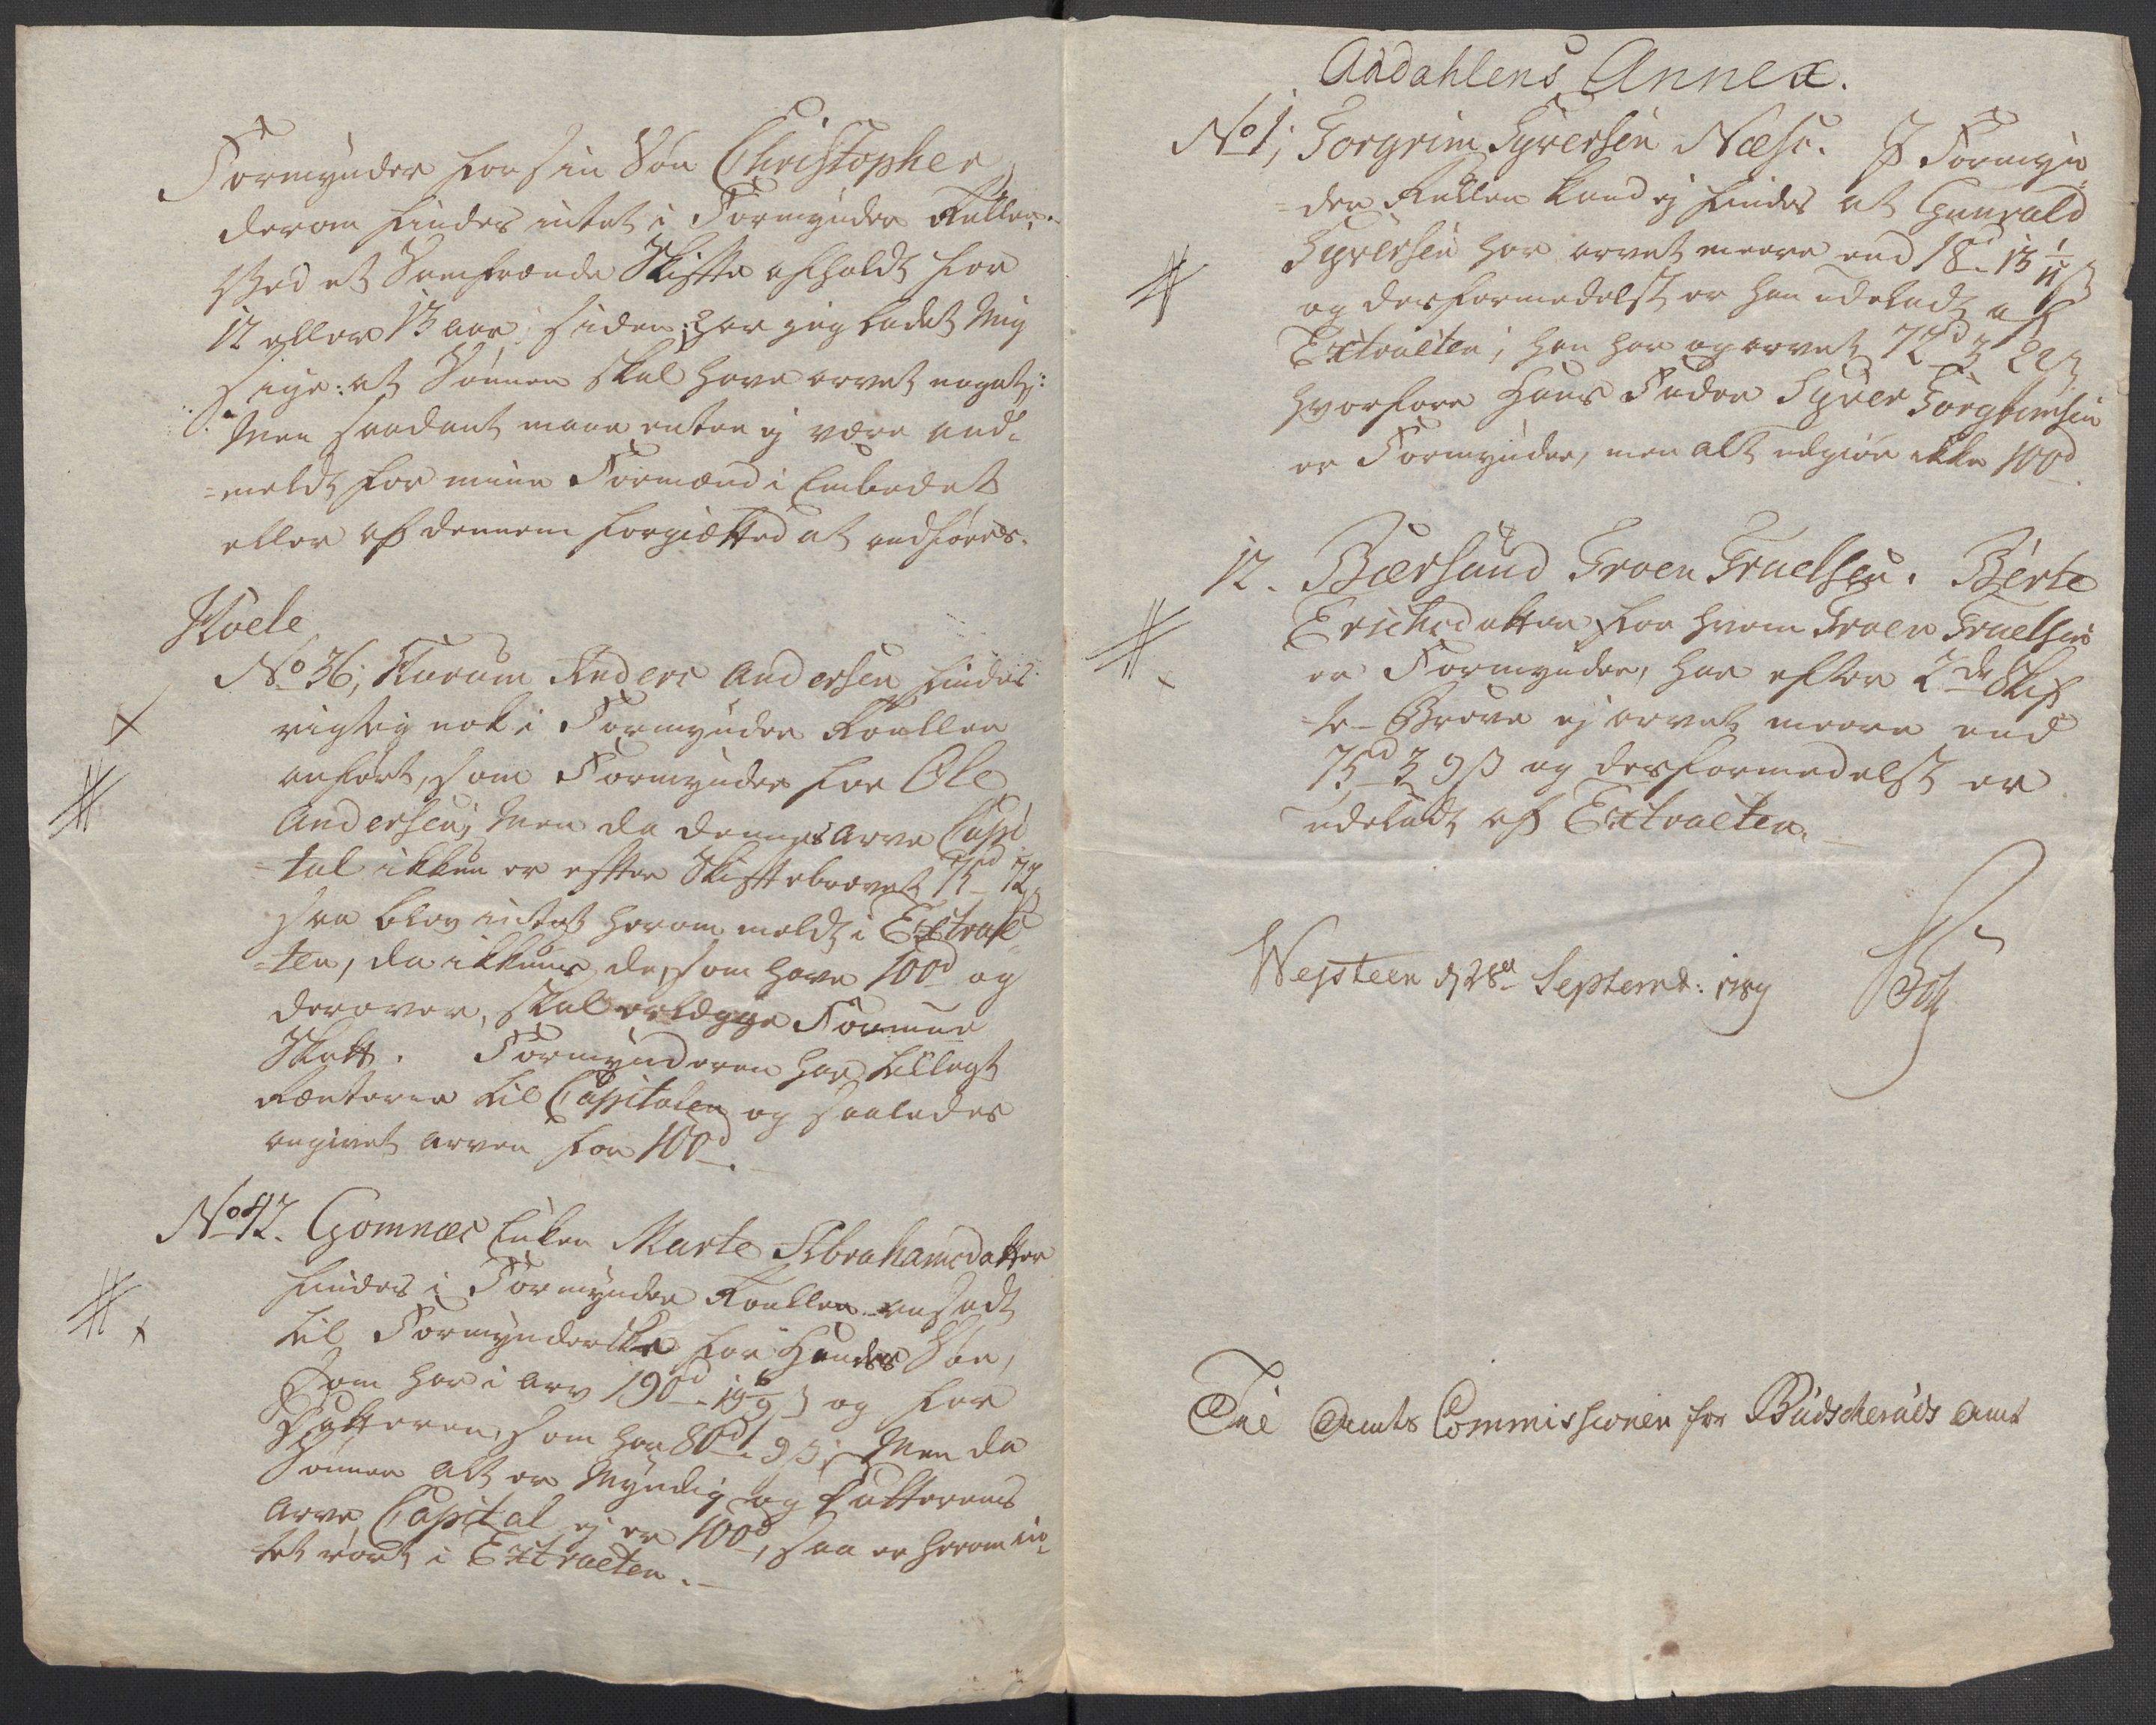 Formynder for sin Søn Christopher
derom findes intet i Formynder Rullen.
Ved et Samfrænde Skifte afholdt for
12 eller 13 aar siden har jeg ladet mig
sige: at Sønnen skal have arvet noget;
Men saadant maae enten ej være and-
=meldt for mine Formænd i Embedet
eller af dennem forgiætted at andføres.
Hoele
No 36; Skurum Anders Andersen findes
rigtig nok i Formynder Roullen
anført, som Formynder for Ole
Andersen; Men da dennes arve Capi
=tal ikkun er efter Skiftebrevet 75d 12
saa blev intet herom meldt i Extrac
=ten, da ikkuns de, som have 100d og
derover, skal erlægge Formue
Skatt. Formynderen har tillagt
Renterne til Capitalen og saaledes
angivet arven for 100d.
No 42. Gomnæs Enken Marte Abrahamsdatter
findes i Formynder Roullen ansadt
til Formynderske for Hendes Søn,
Som har i arv 190d - 19 6/9 ß og for
Datteren, som har 80d 1. 9 ß; Men da
Sønnen alt er Myndig og Datterens
arve Capital ej er 100d, saa er herom in-
tet rørt i Extracten.
Aadahlens Annex.
No 1; Torgrim Syversen Næse. I Formyn
=der Rullen kand ej findes at Gunvald
Syversen har arvet meere end 18d. 13 1/11 ß
og desformedelst er han udeladt af
Extracten; han har og arvet 72d 3 22 ß
hvorfore Hans Fader Syver Torgrimsen
er Formynder, men alt udgiør ikke 100d.
12. Bærsund Troen Truelsen. Berte
Erichsdatter for hvem Troen Truelsen
er Formynder, har efter 2de Skif
=te-Breve ej arvet meere end
75d 3 9 ß og desformedelst er
udeladt af Extracten.
Wejsteen d 28d Septembr: 1789
Til Amts Commissionen for Budscheruds Amt